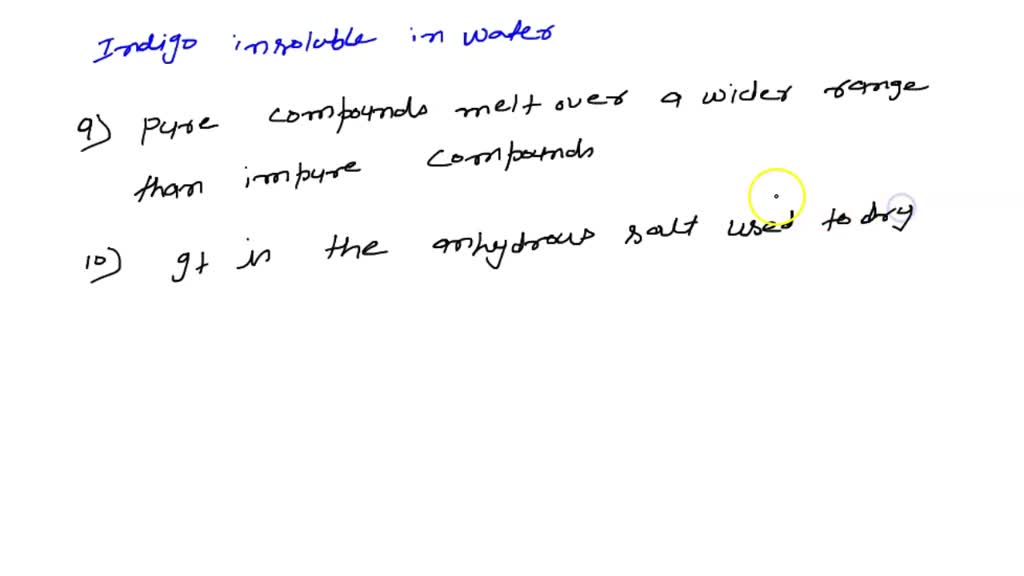 Indigo insoluble in water
9) Pure compounds melt over a wider range
than impure compounds
10) It is the anhydrous salt used to dry